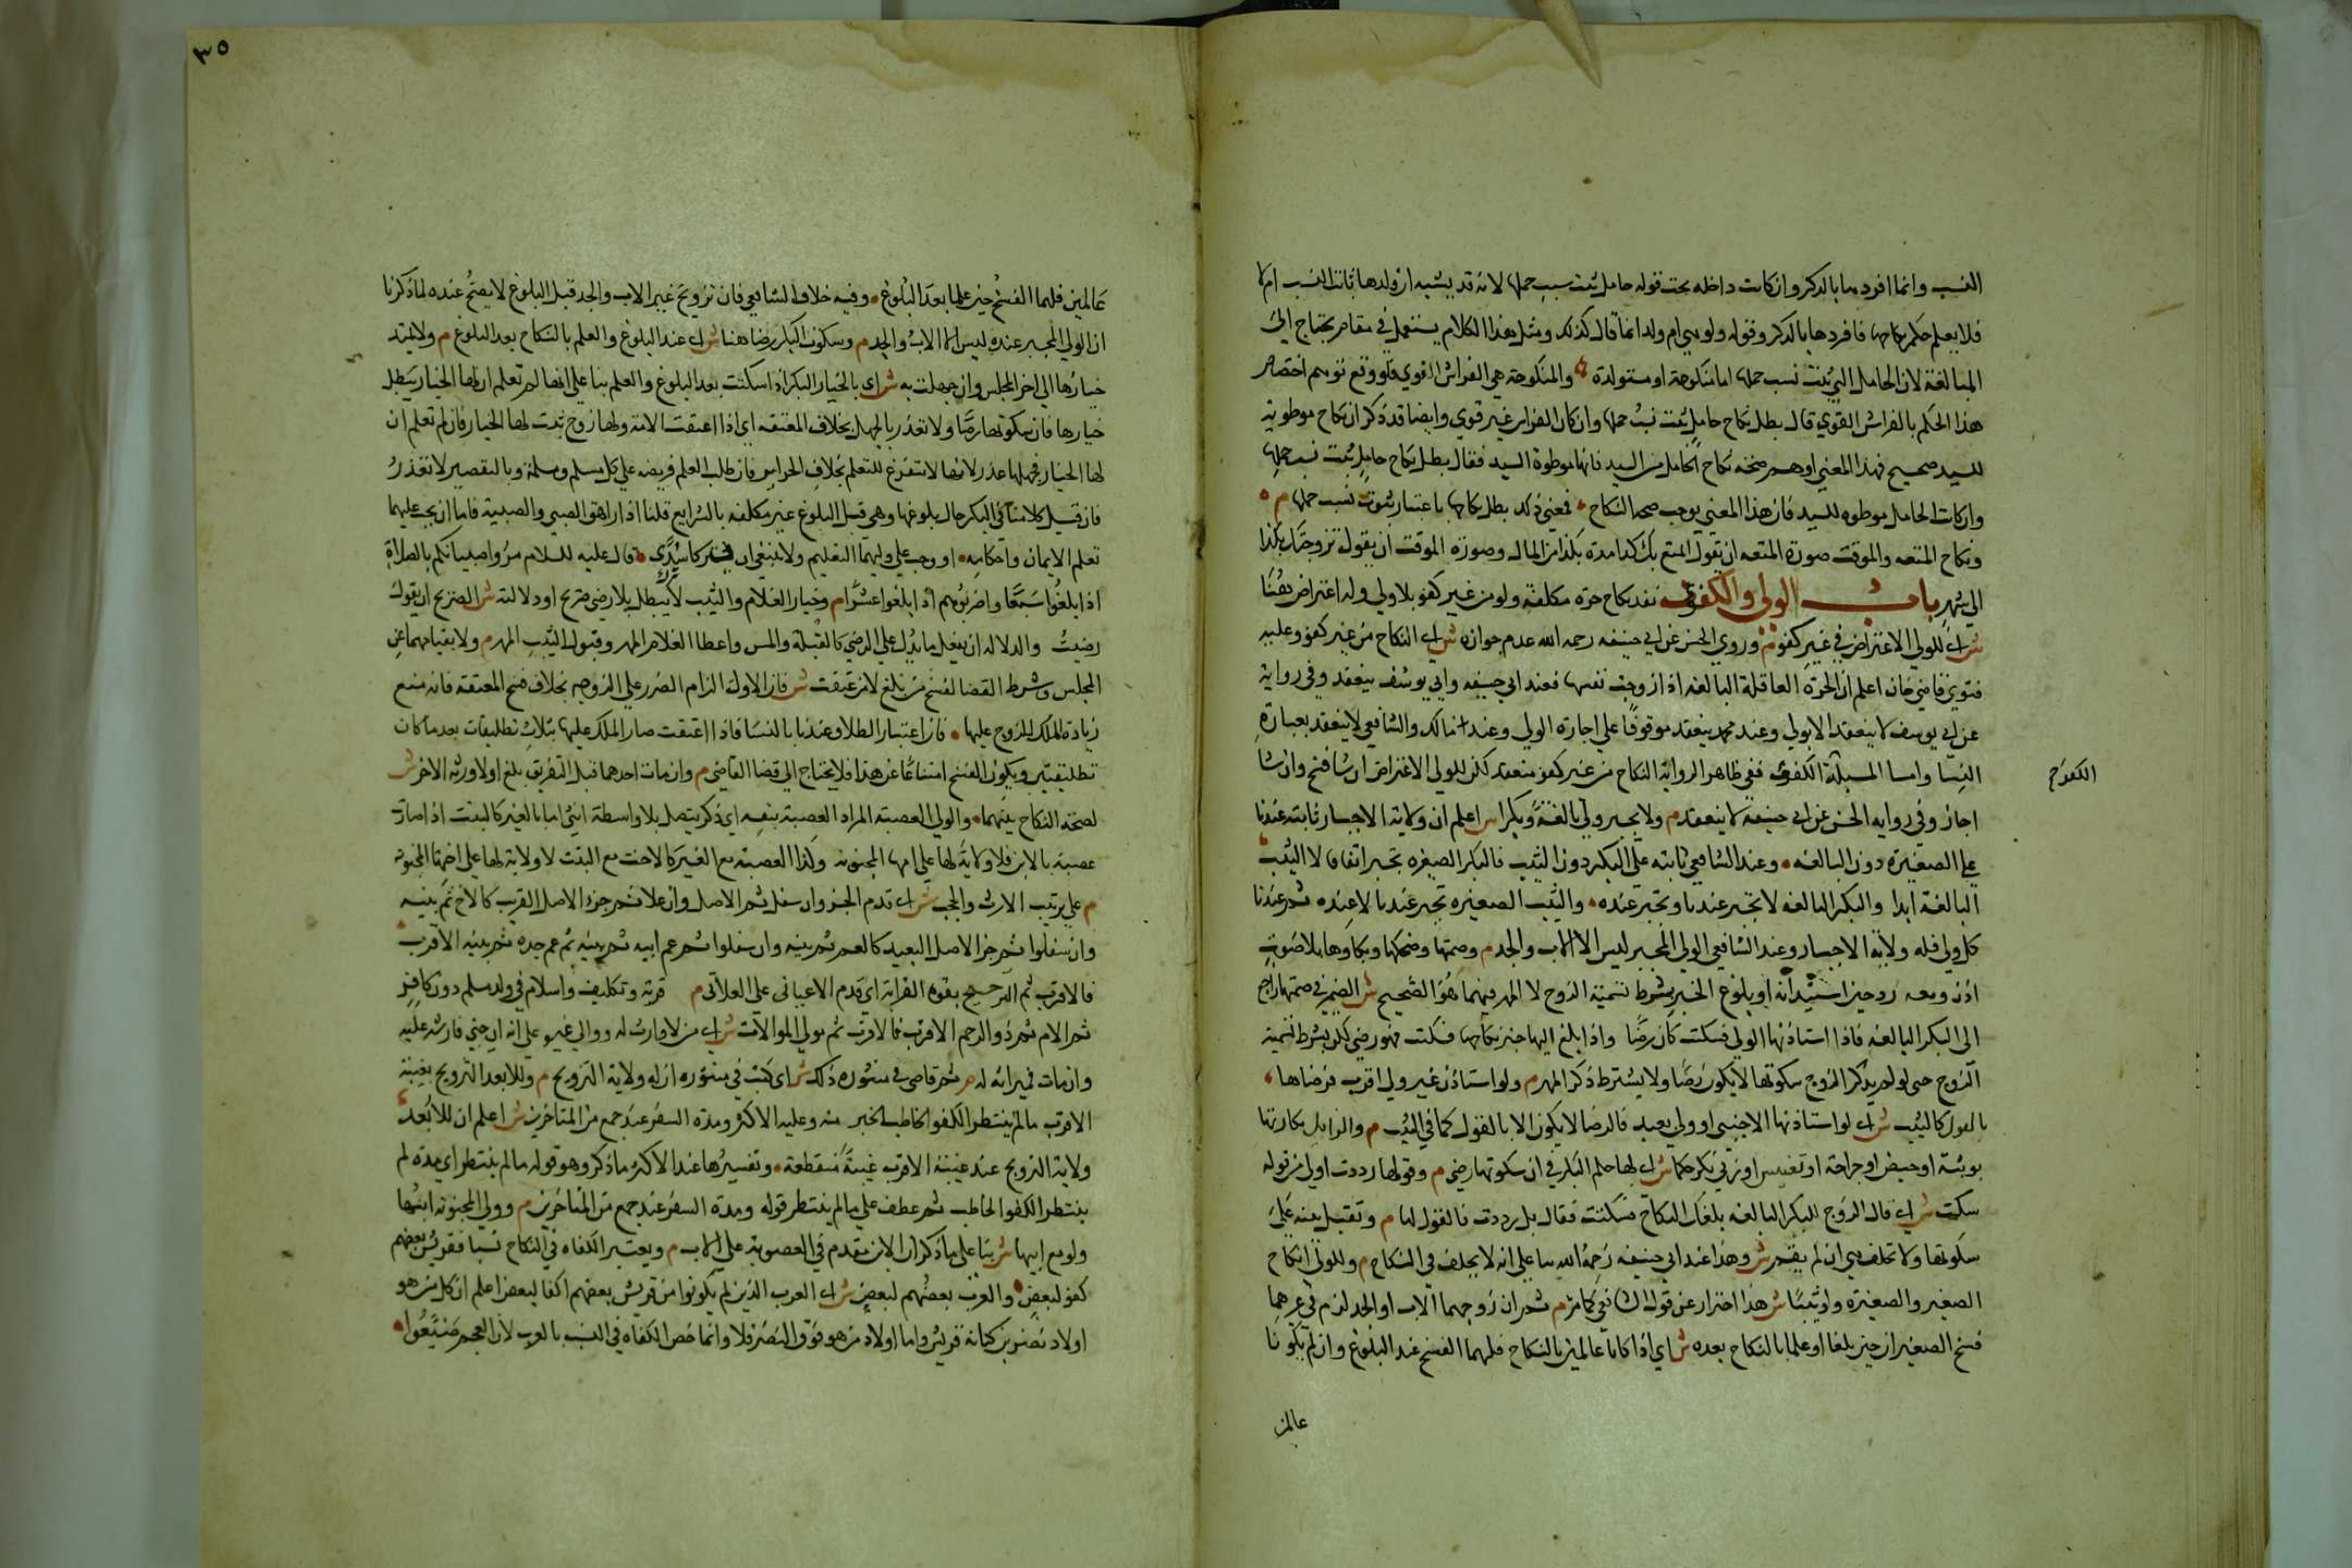 النسب وانما افردها بالذكر وان كانت داخله تحت قوله حامل ثبت نسب حملها لانه قد يشتبه ان ولدها ثابت النسب ام لا
فلا يعلم حكم نكاحها فافردها بالذكر وقوله ولو هي ام ولد انما قال كذلك ومثل هذا الكلام يستعمل في مقام يحتاج الى
المبالغة لان الحامل التي ثبت نسب حملها اما منكوحة او مستولدة والمنكوحة هي الفراش القوي فلو وقع توهم اختصاص
هذا الحكم بالفراش القوي قال بطل نكاح حامل ثبت نسب حملها وان كان الفراش غير قوي وايضا قد ذكر ان نكاح موطوءة
للسيد صحيح فهذا المعنى اوهم صحة نكاح الحامل من السيد فانها موطوة السيد فقال بطل نكاح حامل ثبت نسب حملها
وان كانت الحامل موطوه للسيد فان هذا المعنى يوجب صحه النكاح فمعنى ذلك بطل نكاحها باعتبار ثبوت نسب حملها م
ونكاح المتعه والموقت صورة المتعه ان يقول اتمتع بك كذا مدة بكذا من المال وصورة الموقت ان يقول تزوجتك بكذا
الى شهر باب الولي والكفؤ نفذ نكاح حرة مكلفة ولو من غير كفو بلا ولي وله اعتراض هنا
ش اي للولي الاعتراض في غير كفو م وروى الحسن عن ابي حنيفه رحمه الله عدم جوازه ش اي النكاح من غير كفؤ وعليه
فتوى قاضي خان اعلم ان الحرة العاقلة البالغه اذا زوجت نفسها فعند ابي حنيفه وابي يوسف ينعقد وفي رواية
عن ابي يوسف لا ينعقد الا بولي وعند محمد ينعقد موقوفا على اجازه الولي وعند مالك والشافعي لا ينعقد بعبارة
النسا واما المسيلة الكفؤ ففي ظاهر الرواية النكاح من غير كفو منعقد لكن للولي الاعتراض ان شا فسخ وان شا
اجاز وفي روايه الحسن عن ابي حنيفة لا ينعقد م ولا يجبر ولي بالغة ولو بكرا ش اعلم ان ولاية الاجبار ثابتة عندنا
على الصغيرة دون البالغه وعند الشافعي ثابته على البكر دون الثيب فالبكر الصغيره تجبر اتفاقا لا الثيب
البالغة ابدا والبكر البالغه لا تجبر عندنا وتجبر عنده والثيب الصغيره تجبر عندنا لا عنده ثم عندنا
كل ولي فله ولاية الاجبار وعند الشافعي الولي المجبر ليس الا الاب والجد م وصمتها وضحكها وبكاوها بلا صوت
اذن ومعه رد حين استيذانه او بلوغ الخبر بشرط تسمية الزوج لا المهر فيهما هو الصحيح ش الضمير في صمتها راجع
الى البكر البالغه فاذا استاذنها الولي فسكتت كان رضا واذا بلغ اليها خبر نكاحها فسكتت فهو رضى لكن بشرط تسمية
الزوج حتى لو لم يذكر الزوج سكوتها لا يكون رضا ولا يشترط ذكر المهر م ولو استاذن غير ولي اقرب فرضاها
بالقول كالثيب ش اي لو استاذنها الاجنبي او ولي بعيد فالرضا لا يكون الا بالقول كما في الثيب م والزايل بكارتها
بوثبة او حيض او جراحة او تعنيس او زنى بكر حكما ش اي لها حكم البكر في ان سكوتها رضى م وقولها رددت اولى من قوله
سكت ش اي قال الزوج للبكر البالغه بلغك النكاح فسكتت فقالت بل رددت فالقول لها م وتقبل بينه على
سكوتها ولا تحلف هي ان لم يقم ش وهذا عند ابي حنيفه رحمه الله بنا على انه لا يحلف في النكاح م وللولي انكاح
الصغير والصغيرة ولو ثيبا ش هذا احتراز عن قول الشافعي كما مر م ثم ان زوجهما الاب او الجد لزم وفي غيرهما
فسخ الصغيران حين بلغا او علما بالنكاح بعده ش اي اذا كانا عالمين بالنكاح فلهما الفسخ عند البلوغ وان لم يكونا
عالمين
٣٥
عالمين فلهما الفسخ حين علما بعد البلوغ وفيه خلاف الشافعي فان تزويج غير الاب والجد قبل البلوغ لا يصح عنده لما ذكرنا
ان الولي المجبر عنده ليس الا الاب والجد م وسكوت البكر رضا هنا ش اي عند البلوغ والعلم بالنكاح بعد البلوغ م ولا يمتد
خيارها الى اخر المجلس وان جهلت به ش اي بالخيار البكر اذا سكتت بعد البلوغ والعلم بنا على انها لم تعلم ان لها الخيار يبطل
خيارها فان سكوتها رضا ولا تعذر بالجهل بخلاف المعتقه اي اذا اعتقت الامة ولها زوج ثبت لها الخيار فان لم تعلم ان
لها الخيار فجهلها عذر لانها لا تتفرغ للتعلم بخلاف الحراير فان طلب العلم فريضه على كل مسلم ومسلمة وبالتقصير لا تعذر
فان قيل كلامنا في البكر حال بلوغها وهي قبل البلوغ غير مكلفه بالشرايع قلنا اذا راهق الصبي والصبية فاما ان يجب عليهما
تعلم الايمان واحكامه او وجب على وليهما التعليم ولا ينبغي ان يترك سدى قال عليه السلام مروا صبيانكم بالصلاة
اذا بلغوا سبعا واضربوهم اذا بلغوا عشرا م وخيار الغلام والثيب لا يبطل بلا رضى صريح او دلالته ش الصريح ان يقول
رضيت والدلاله ان يفعل ما يدل على الرضى كالقبلة والمس واعطا الغلام المهر وقبول الثيب المهر م ولا بقيامهما عن
المجلس وشرط القضا لفسخ من بلغ لا من عتقت ش فان الاول الزام الضرر على الزوج بخلاف فسخ المعتقة فانه منع
زيادة الملك للزوج عليها فان اعتبار الطلاق عندنا بالنسا فاذا اعتقت صار الملك عليها بثلاث تطليقات بعد ما كان
تطليقتين ويكون الفسخ امتناعا عن هذا فلا يحتاج الى قضا القاضي م وان مات احدهما قبل التفريق بلغ او لا ورثه الاخر ش
لصحة النكاح بينهما والولي العصبة المراد العصبة بنفسه اي ذكر يتصل بلا واسطة انثى اما بالغير كالبنت اذا صارت
عصبة بالابن فلا ولاية لها على امها المجنونه وكذا العصبة مع الغير كالاخت مع البنت لا ولاية لها على اختها المجنونه
م على ترتيب الارث والحجب ش اي قدم الجزء وان سفل ثم الاصل وان علا ثم جزء الاصل القريب كالاخ ثم بنيه
وان سفلوا ثم جزء الاصل البعيد كالعم ثم بنيه وان سفلوا ثم عم ابيه ثم بنيه ثم عم جده ثم بنيه الاقرب
فالاقرب ثم الترجيح بقوه القرابة اي قدم الاعياني على العلاتي م حرية وتكليف واسلام في ولد مسلم دون كافر
ثم الام ثم ذو الرحم الاقرب فالاقرب ثم مولى الموالاة ش اي من لا وارث له ووالى غيره على انه ان جنى فارشه عليه
وان مات فميراثه له م ثم قاض في منشوره ذلك ش اي كتب في منشوره ان له ولاية التزويج م وللابعد التزويج بغيبة
الاقرب ما لم ينتظر الكفو الخاطب الخبر منه وعليه الاكثر ومدة السفر عند جمع من المتاخرين ش اعلم ان للابعد
ولاية التزويج عند غيبة الاقرب غيبة منقطعة وتفسيرها عند الاكثر ما ذكر وهو قوله ما لم ينتظر اي مدة لم
ينتظر الكفو الخاطب ثم عطف على ما لم ينتظر قوله ومدة السفر عند جمع من المتاخرين م وولي المجنونه ابنها
ولو مع ابيها ش بنا على ما ذكر ان الابن مقدم في العصوبة على الاب م ويعتبر الكفاه في النكاح نسبا فقريش بعضهم
كفو لبعض والعرب بعضهم لبعض ش اي العرب الذين لم يكونوا من قريش بعضهم اكفا لبعض اعلم ان كل من هو
اولاد نضر بن كنانة قريش واما اولاد من هو فوق النضر فلا وانما خص الكفاه في النسب بالعرب لان العجم ضيعوا